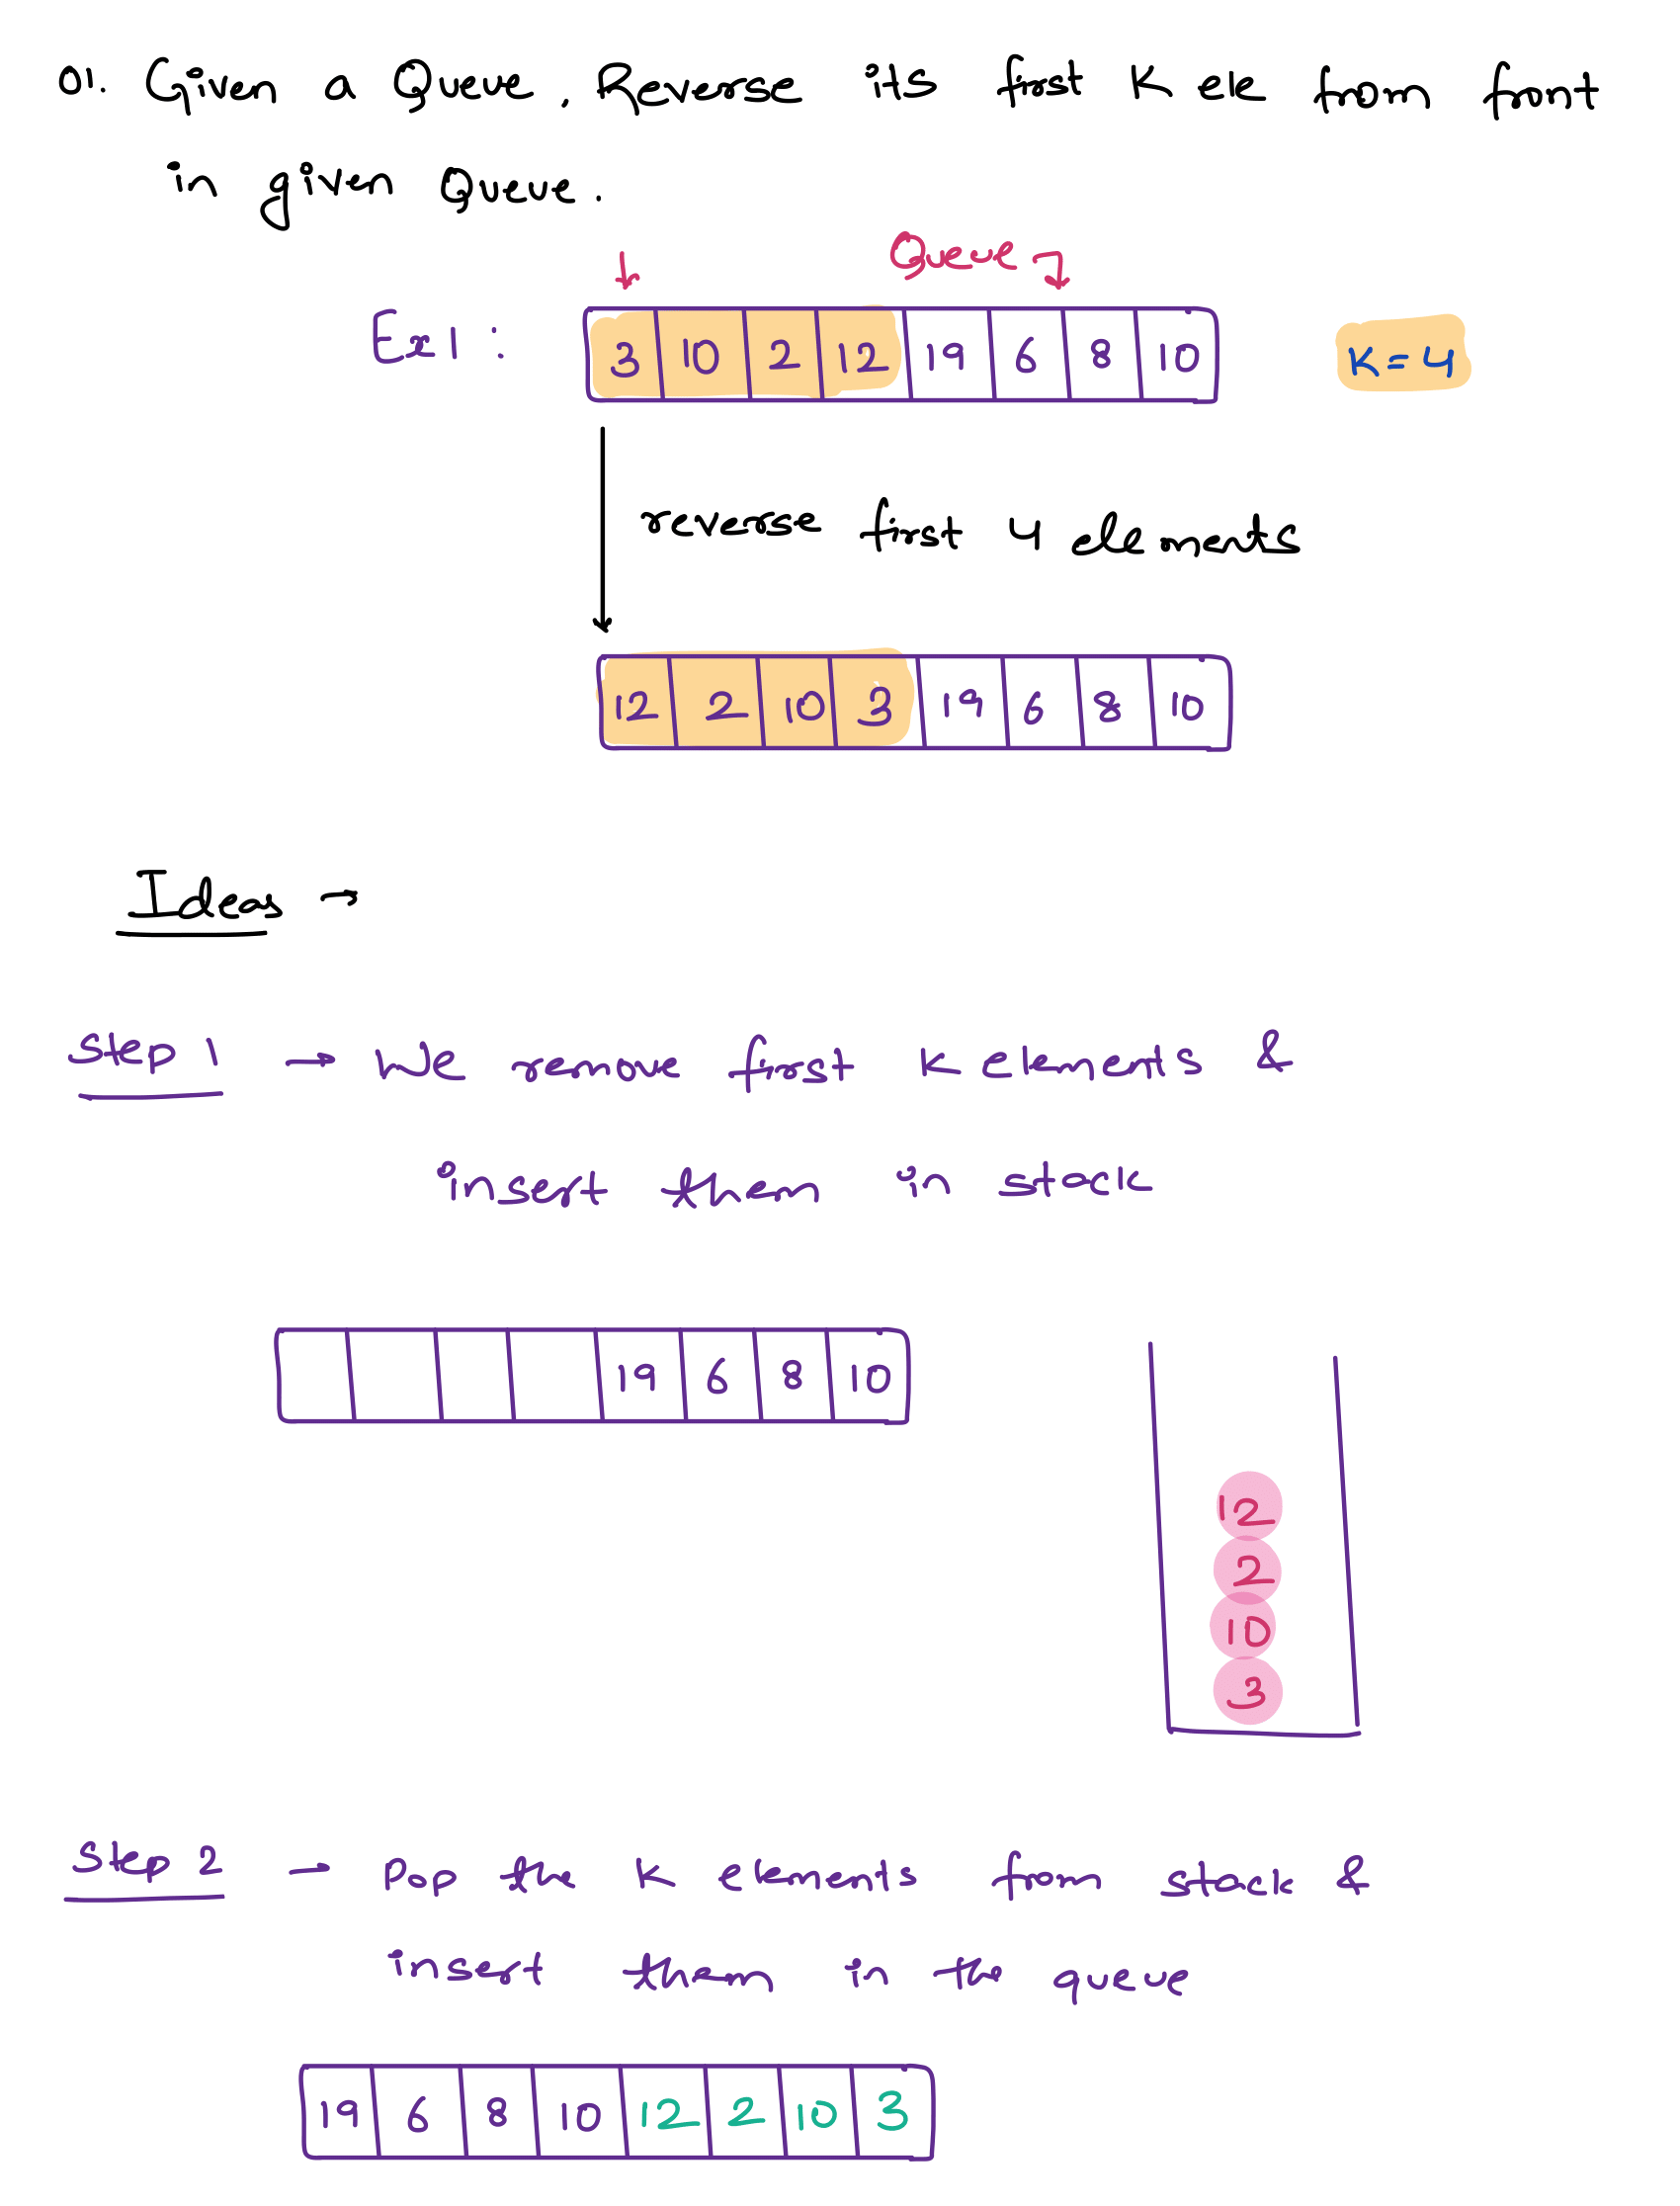 01. Given a Queue, Reverse its first K ele from front
in given Queue.
Queue
Ex1: 3 10 2 12 19 6 8 10 K=4
reverse first 4 elements
12 2 10 3 19 6 8 10
Ideas →
Step 1 → We remove first K elements &
insert them in stack
19 6 8 10
12
2
10
3
Step 2 → Pop the K elements from stack &
insert them in the queue
19 6 8 10 12 2 10 3